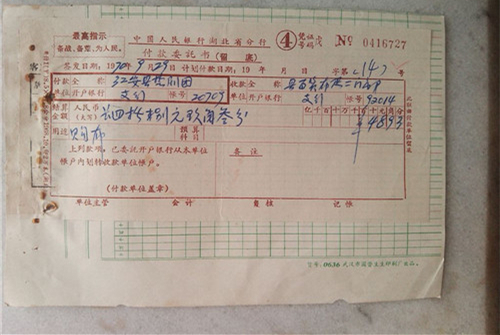 最高指示
备战、备荒、为人民。
中国人民银行湖北省分行
付款委託书(留底)
④ 凭证号码 № 0416727
签发日期:1970年9月29日 计划付款日期:19 年 月 日 字第(14)号
付款全称 红安县楚剧团 收款全称
单位开户银行 支行 帐号 20709 单位开户银行 支行 帐号 92014
结算金额 人民币(大写) 肆拾捌元玖角叁分 亿千百十万千百十元角分 ¥4893
用途 购布 预算科目
上列款项,已委托开户银行从本单位
帐户内划转收款单位帐户。
备注
(付款单位盖章)
单位主管 会计 复核 记帐